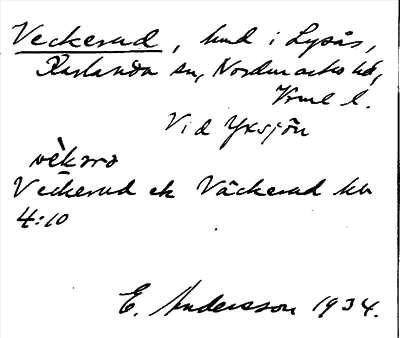 Veckerud, hmd i Lysås,
Karlanda sn, Nordmarks hd,
Vrml l.
Vid Yxsjön
vèkərə
Veckerud ek Väckerud kb
4:10
E. Andersson 1934.